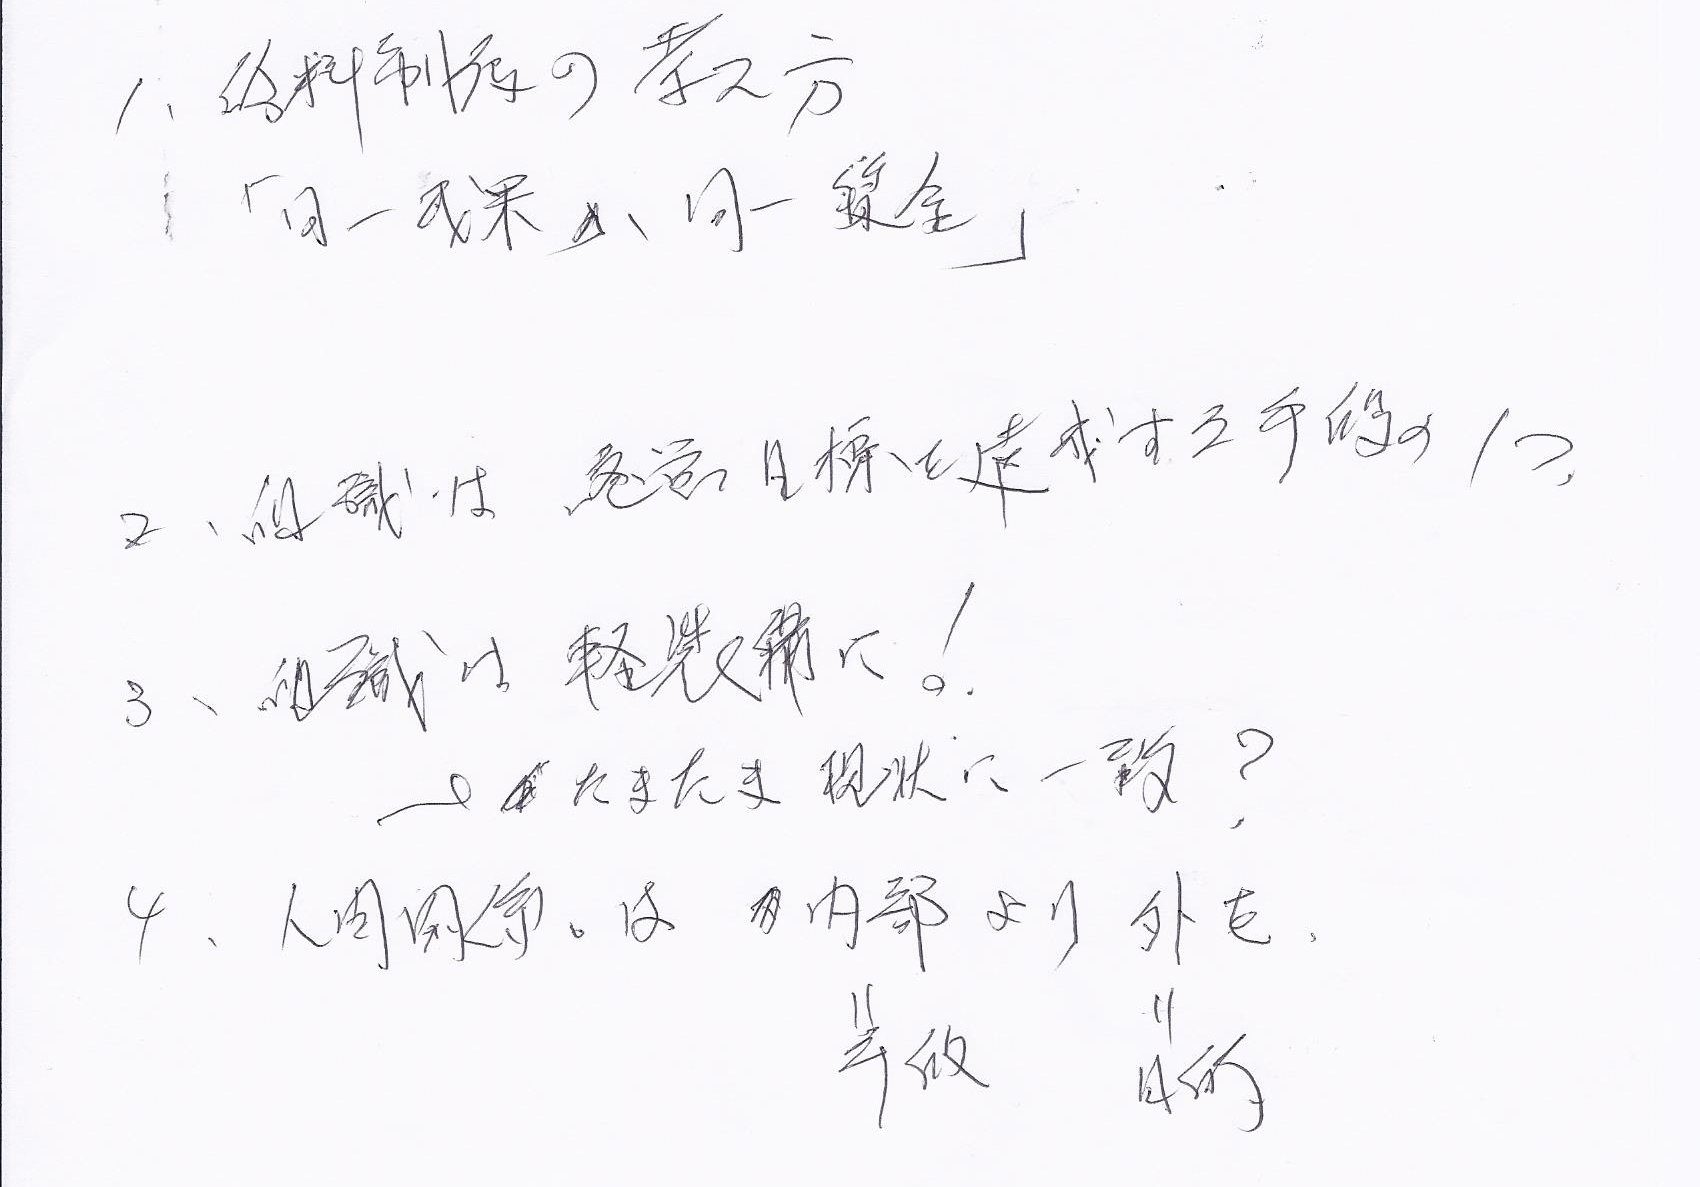 1、給料制度の考え方
「同一成果、同一賃金」
2、組織は経営目標を達成する手段の1つ。
3、組織は軽装備に!
たまたま現状に一致?
4、人間関係は内部より外を.
〃 〃
手段 目的